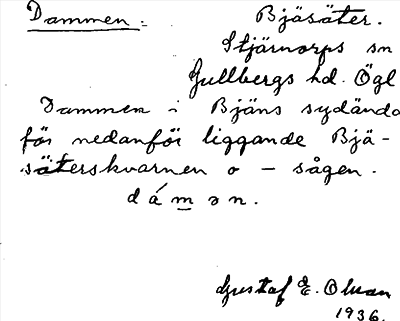 Dammen: Bjäsäter.
Stjärnorps sn
Gullbergs hd. Ögl
Dammen i Bjäns sydända
för nedanför liggande Bjä-
säterskvarnen o - sågen.
dámən.
Gustaf E. Olsson
1936.